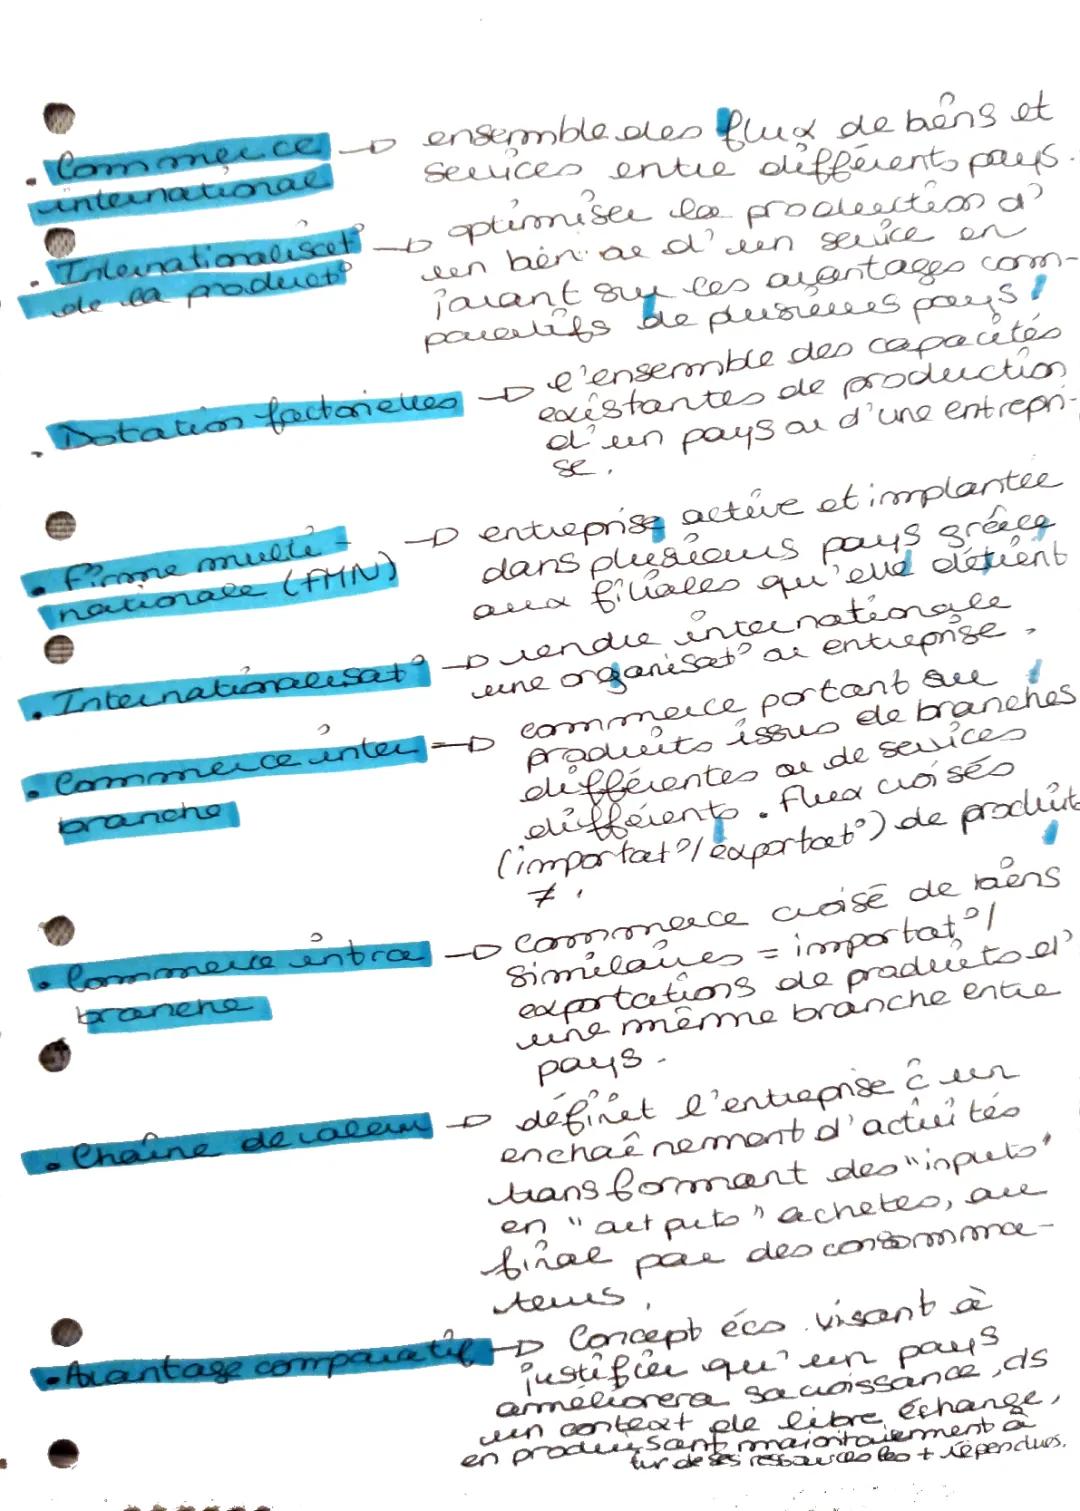 . Commerce → ensemble des flux de biens et
international services entre différents pays.
. Internationalisat° → optimiser la production d'
de la product° un bien ou d'un service en
jouant sur les avantages com-
paratifs de plusieurs pays.
. Dotation factorielles → l'ensemble des capacités
existantes de production
d'un pays ou d'une entrepri-
se.
. Firme multi- → entreprise active et implantée
nationale (FMN) dans plusieurs pays grâce
aux filiales qu'elle détient
. Internationalisat° → rendre internationale
une organisat° ou entreprise.
. Commerce inter → commerce portant sur
branche produits issus de branches
différentes ou de services
différents. Flux croisés
(importat°/exportat°) de produits
≠.
. Commerce intra → Commerce croisé de biens
branche similaires = importat°/
exportations de produits d'
une même branche entre
pays.
. Chaîne de valeur → définit l'entreprise à un
enchaînement d'activités
transformant des "inputs"
en "outputs" achetés, au
final par des consomma-
teurs.
. Avantage comparatif → Concept éco visant à
justifier qu'un pays
améliorera sa croissance, ds
un context de libre échange,
en produisant majoritairement à
tur de ses ressources les + répendues.